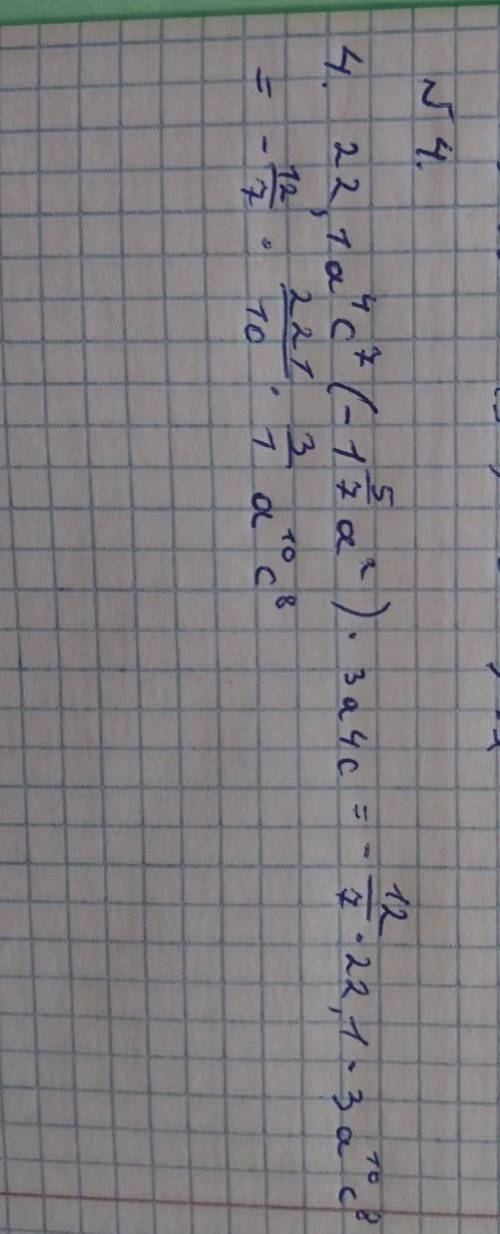 №4.
4. 22,1a⁴c⁷(-1 5/7 a²)·3a4c = -12/7·22,1·3a¹⁰c⁸
= -12/7 · 221/10 · 3/1 a¹⁰c⁸